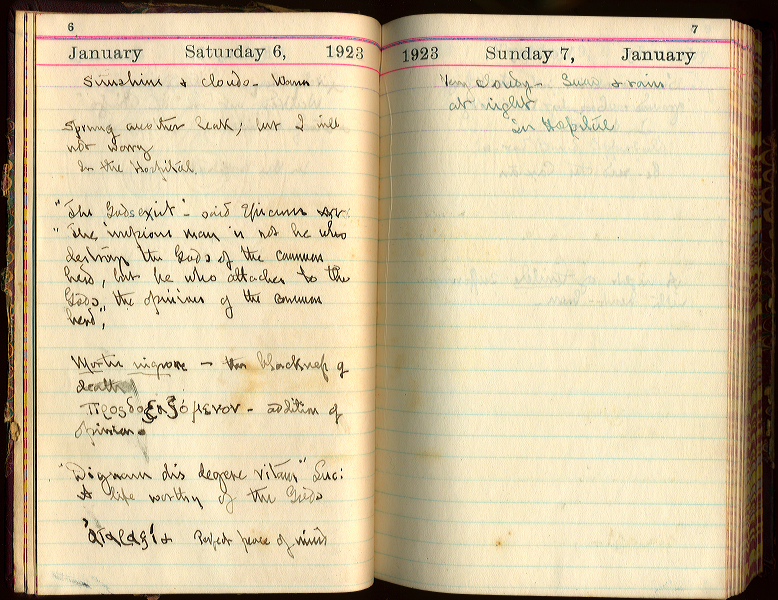 6
January Saturday 6, 1923
Sunshine & clouds - Warm
Sprung another leak; but I will
not worry
In the Hospital.
"The Gods exist" - said Epicurus
"The impious man is not he who
destroys the Gods of the common
herd, but he who attaches to the
Gods, the opinions of the common
herd",
Mortis nigrore - the blackness of
death
προςδοξαζόμενον - addition of
opinion
"Dignam dis degere vitam" Luc:
A life worthy of the Gods
Perfect peace of mind
7
1923 Sunday 7, January
Very cloudy - & rain
at night
In Hospital